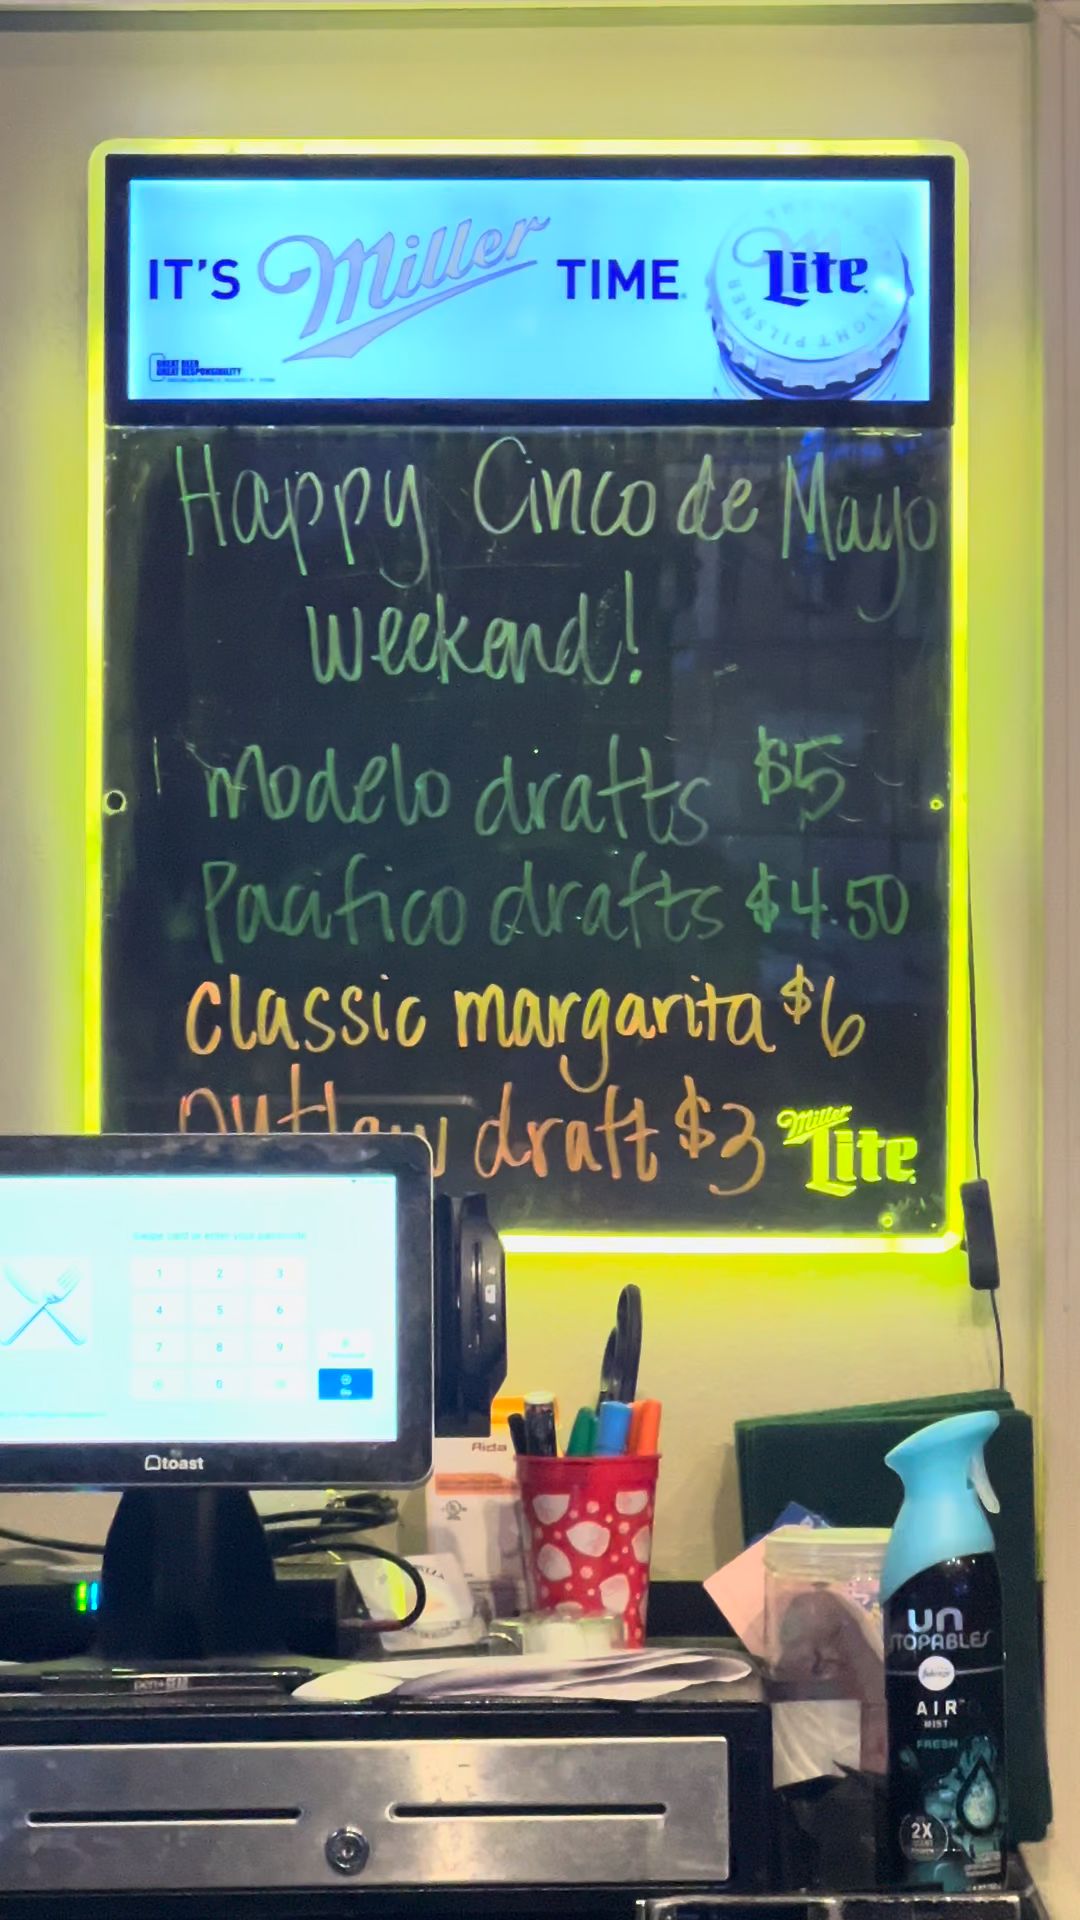 IT'S Miller TIME Lite
LIGHT PILSNER
GREAT BEER
GREAT RESPONSIBILITY
Happy Cinco de Mayo
weekend!
Modelo drafts $5
Pacifico drafts $4.50
Classic margarita $6
Outlaw draft $3
Miller
Lite
Swipe card or enter your passcode
1 2 3
4 5 6
7 8 9
0
Go
toast
Aida
UN
STOPABLES
febreze
AIR
MIST
FRESH
2X